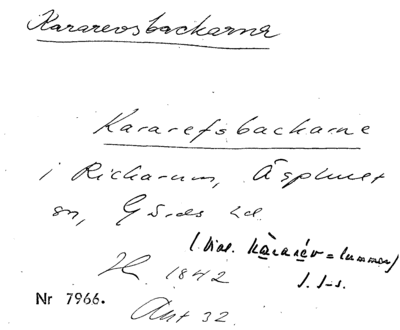 Kararevsbackarna
Kararefsbackarne
i Rickarum, Äsphult
sn, Gärds hd.
(Dial. kàrarév = lummer)
H. 1842 J. J-s.
Nr 7966. Ant 32.